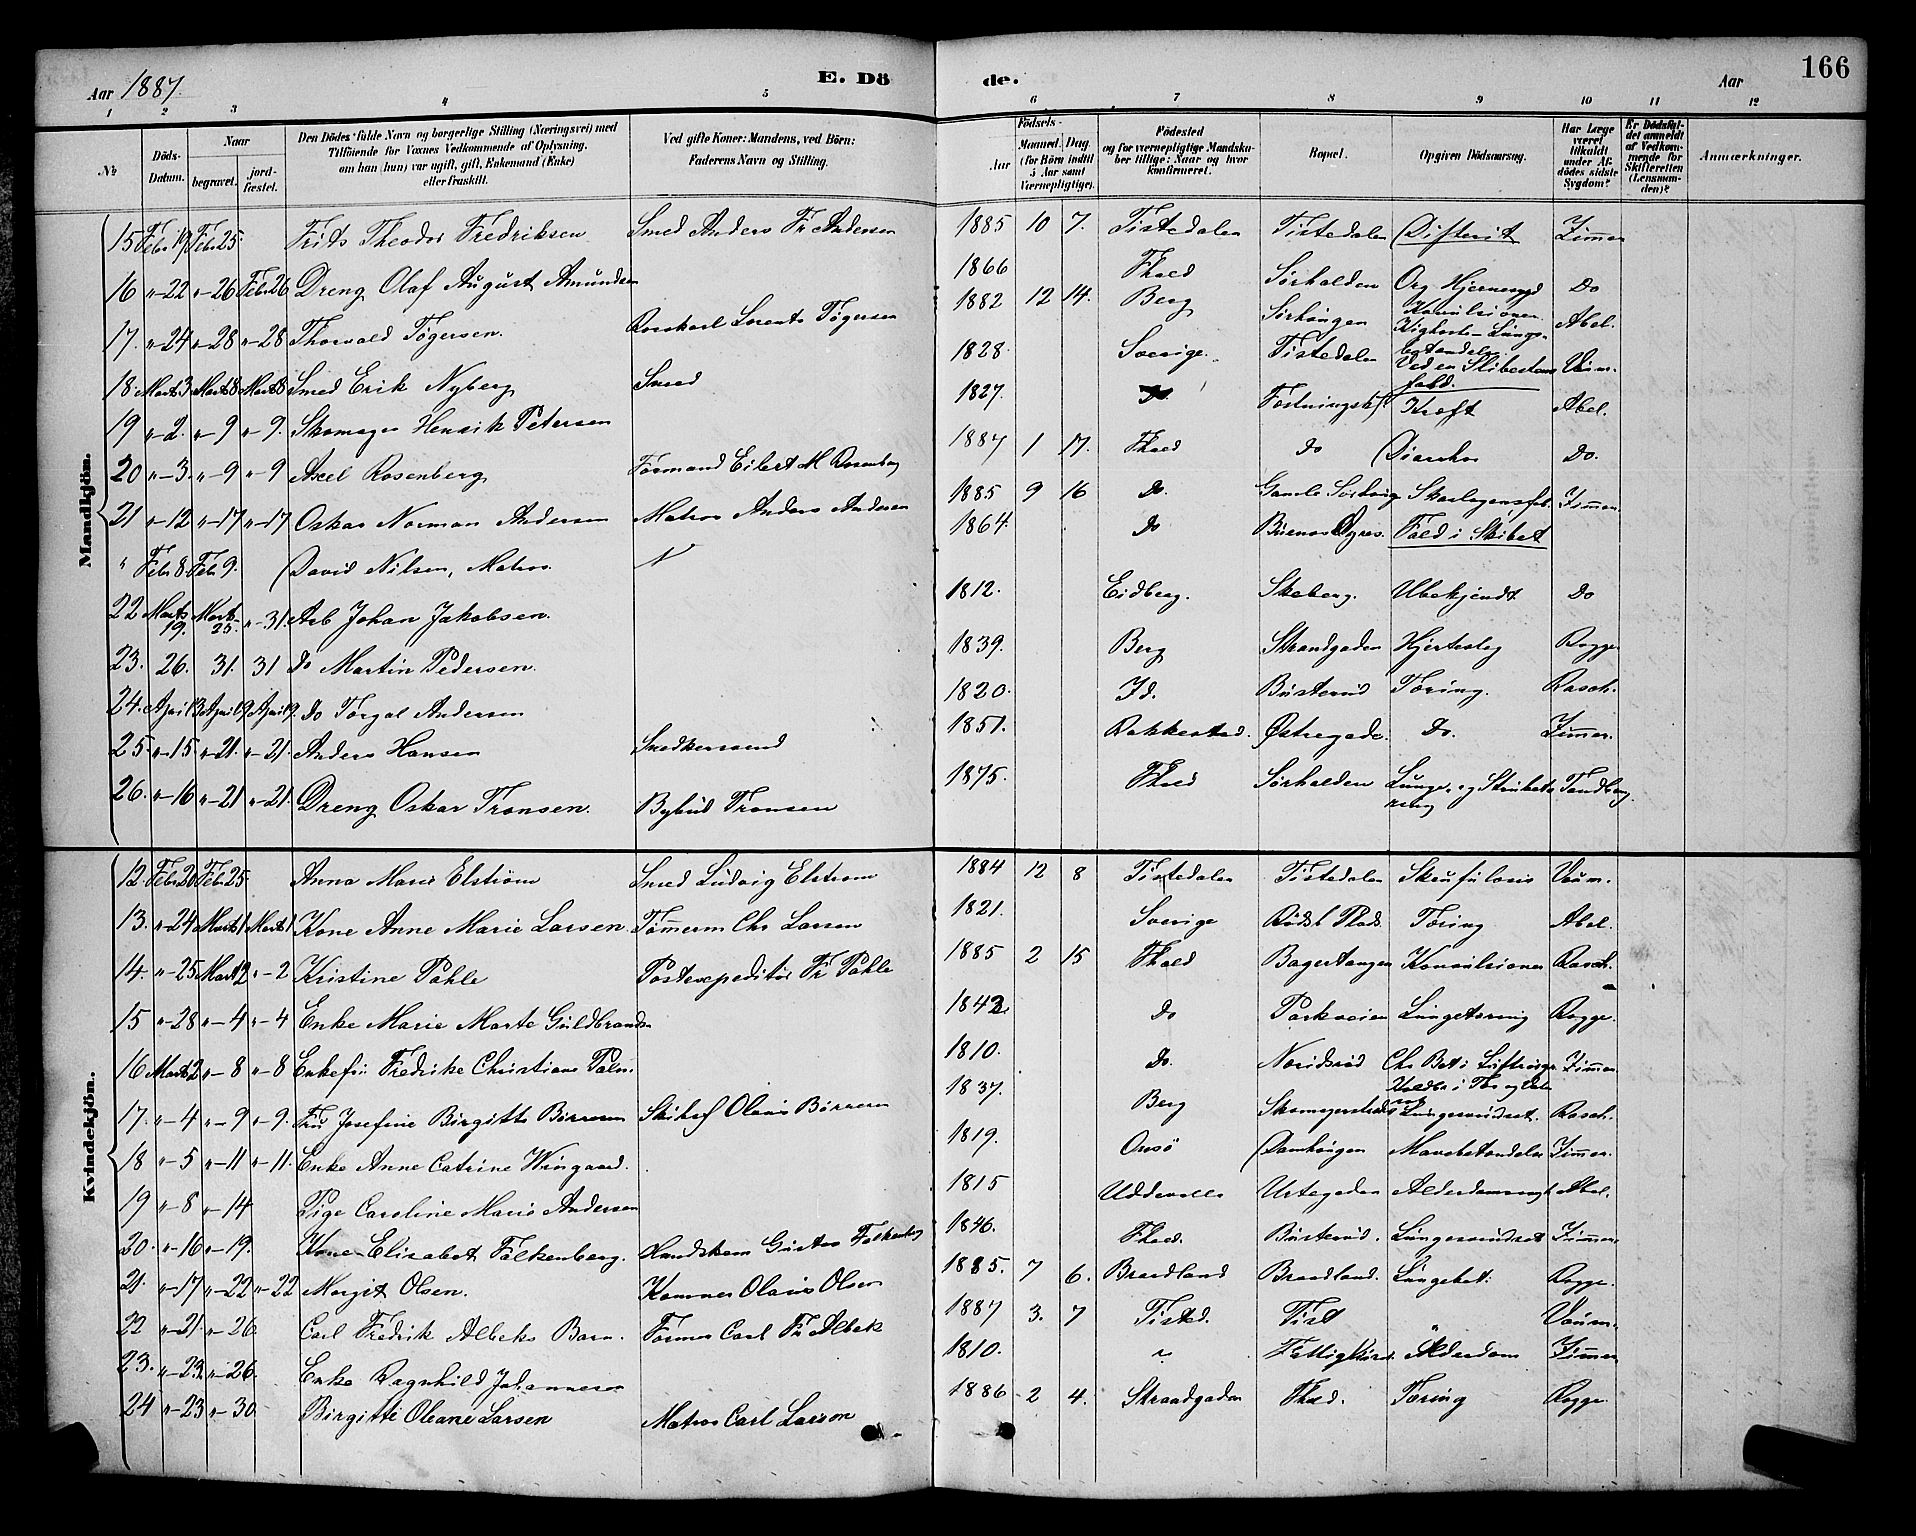 Aar 1887. E. Dö de. Aar 166
1 2 3 4 5 6 7 8 9 10 11 12
№ Döds-Datum. Naar begravet. jordfæstet. Den Dödes fulde Navn og borgerlige Stilling (Næringsvei) med Tilföiende for Voxnes Vedkommende af Oplysning, om han (hun) var ugift, gift, Enkemand (Enke) eller fraskilt. Ved gifte Koner: Mandens, ved Börn: Faderens Navn og Stilling. Födsels- Aar Maaned. Dag. (for Börn indtil 5 Aar samt Værnepligtige). Födested og for værnepligtige Mandskaber tillige: Naar og hvor konfirmeret. Bopæl. Opgiven Dödsaarsag. Har Læge været tilkaldt under Afdödes sidste Sygdom? Er Dödsfaldet anmeldt af Vedkommende for Skifteretten (Lensmanden)? Anmærkninger.
Mandkjön.
15 Febr 19 Febr 25. Frits Theodor Fredriksen Smed Anders Fr Andersen 1885 10 7. Tistedalen Tistedalen Difterit Zimmer
16 "-22 "-26 Febr 26 Dreng Olaf August Amundsen 1866 Fhald Sørhalden Org Do
17. "-24 "-28 "-28 Thorvald Tøgersen. Lorents Tøgersen 1882 12 14. Berg Sørhaugen Konvulsioner Abel.
18. Marts 3 Marts 8 Marts 8 Smed Erik Nyberg Smed 1828. Sverige. Tistedalen
19 "-2. "-9 "-9. Skomager Henrik Petersen 1827. Do Kræft Abel.
20 "-3. "-9 "-9 Axel Rosenberg Formand Eilert M Rosenberg 1887 1 17. Fhald do Diarrhoe Do.
21 "-12 "-17 "-17 Oskar Norman Andersen Matros Anders Andersen 1885 9 16 Do. Gamle Zimmer.
" Febr 8. Febr 9. David Nilsen, Matros. 1864. Do Buenos Ayres. Fald i Skibet
22 Marts 19. Marts 25. "-31 Arb Johan Jakobsen. 1812. Eidberg. Skeberg. Ubekjendt Do
23. 26. 31. 31 do Martin Pedersen. 1839. Berg Strandgaden Hjerteslag Rogge
24. April 13 April 19 April 19. do Torgal Andersen 1820. Id. Busterud Tæring. Rasch.
25. "-15 "-21. "-21 Anders Hansen Snedkersvend 1851. Rakkestad. Østregade. Do. Zimmer.
26. "-16 "-21 "-21. Dreng Oskar Tronsen. Bybud Tronsen 1875. Fhald Sørhalden Lunge- og Strubetæring Tandberg.
Kvindekjön.
12. Febr 20 Febr 25. Anna Marie Elstrøm Smed Ludvig Elstrøm 1884 12 8 Tistedalen Tistedalen Skrufulosis
13. "-24 Marts 1 Marts 1 Kone Anne Marie Larsen. Tømmerm Chr Larsen 1821. Sverige Røds Plads Tæring Abel.
14. "-25 Marts 2 "-2 Kristine Pahle Postexpeditør Fr Pahle 1885 2 15 Fhald Bagertangen Konvulsioner Rasch.
15 "-28 "-4 "-4 Enke Marie Marte Guldbrandsen 1842. Do Parkveien Lungetæring Rogge.
16 Marts 2 "-8 "-8 Enkefru Fredrike Christiane Palm 1810. Do. Chr Bet i Luftrørsgr Zimmer
17. "-4 "-9 "-9. Fru Josefine Birgitte Børresen Skibsf Olaus Børresen 1837. Berg Rasch.
18 "-5 "-11 "-11. Enke Anne Catrine Wingaard. 1819. Onsø Damhaugen Mavebetændelse Zimmer.
19 "-8 "-14 Pige Caroline Marie Andersen 1815 Uddevalla Urtegaden Alderdomssvagh Abel.
20. "-16 "-19. Kone Elisabet Falkenberg. Handskem Gustav Falkenberg 1846. Fhald. Busterud. Zimmer.
21. "-17 "-22 "-22 Margit Olsen. Olaus Olsen 1885. 7 6. Braadland Braadland. Lungebet. Rogge.
22 "-21. "-26. Carl Fredrik Albeks Barn. Former Carl Fr Albek 1887 3. 7 Tisted. Tist
23. "-23. "-26. Enke Ragnhild Johannesen 1810. " Alderdom Zimmer
24 "-23 "-30 Birgitte Oleane Larsen Matros Carl Larson 1886 2 4. Strandgaden Fhald. Tæring Rogge.